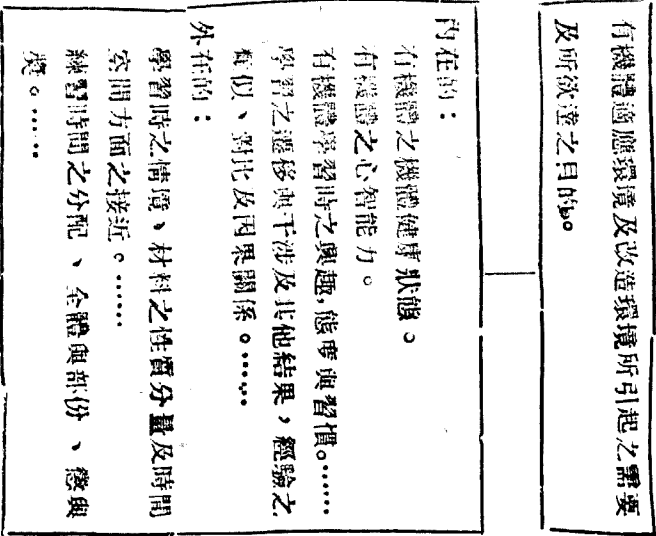 有機體適應環境及改造環境所引起之需要
及所欲達之目的。
內在的：
有機體之機體健康狀態。
有機體之心智能力。
有機體學習時之興趣，態度與習慣。……
學習之遷移與干涉及其他結果，經驗之
類似、對比及因果關係。……
外在的：
學習時之情境、材料之性質分量及時間
空間方面之接近。……
練習時間之分配、全體與部份、懲與
獎。……